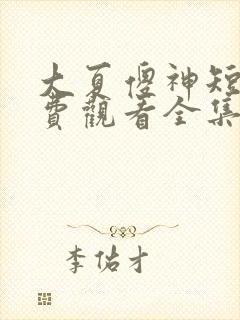 大夏傻神短
費觀看全集
李佑才